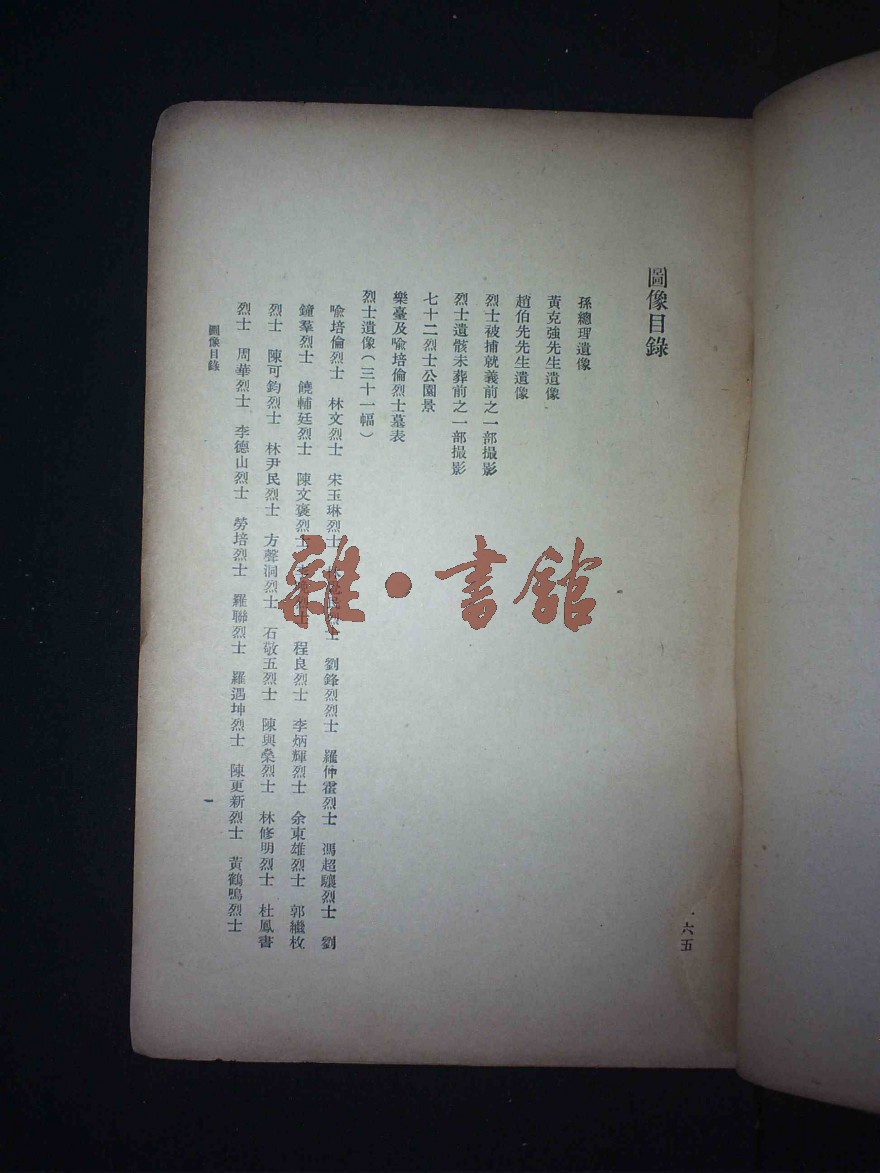 圖像目錄
孫總理遺像
黃克強先生遺像
趙伯先先生遺像
烈士被捕就義前之一部撮影
烈士遺骸未葬前之一部撮影
七十二烈士公園景
樂臺及喩培倫烈士墓表
烈士遺像(三十一幅)
喩培倫烈士 林文烈士 宋玉琳烈士 烈士 劉鋒烈烈士 羅仲霍烈士 馮超驤烈士 劉
鐘羣烈士 饒輔廷烈士 陳文褒烈士 程良烈士 李炳輝烈士 余東雄烈士 郭繼枚
烈士 陳可鈞烈士 林尹民烈士 方聲洞烈士 石敬五烈士 陳與燊烈士 林修明烈士 杜鳳書
烈士 周華烈士 李德山烈士 勞培烈士 羅聯烈士 羅遇坤烈士 陳更新烈士 黃鶴鳴烈士
圖像目錄
一
六五
雜·書館